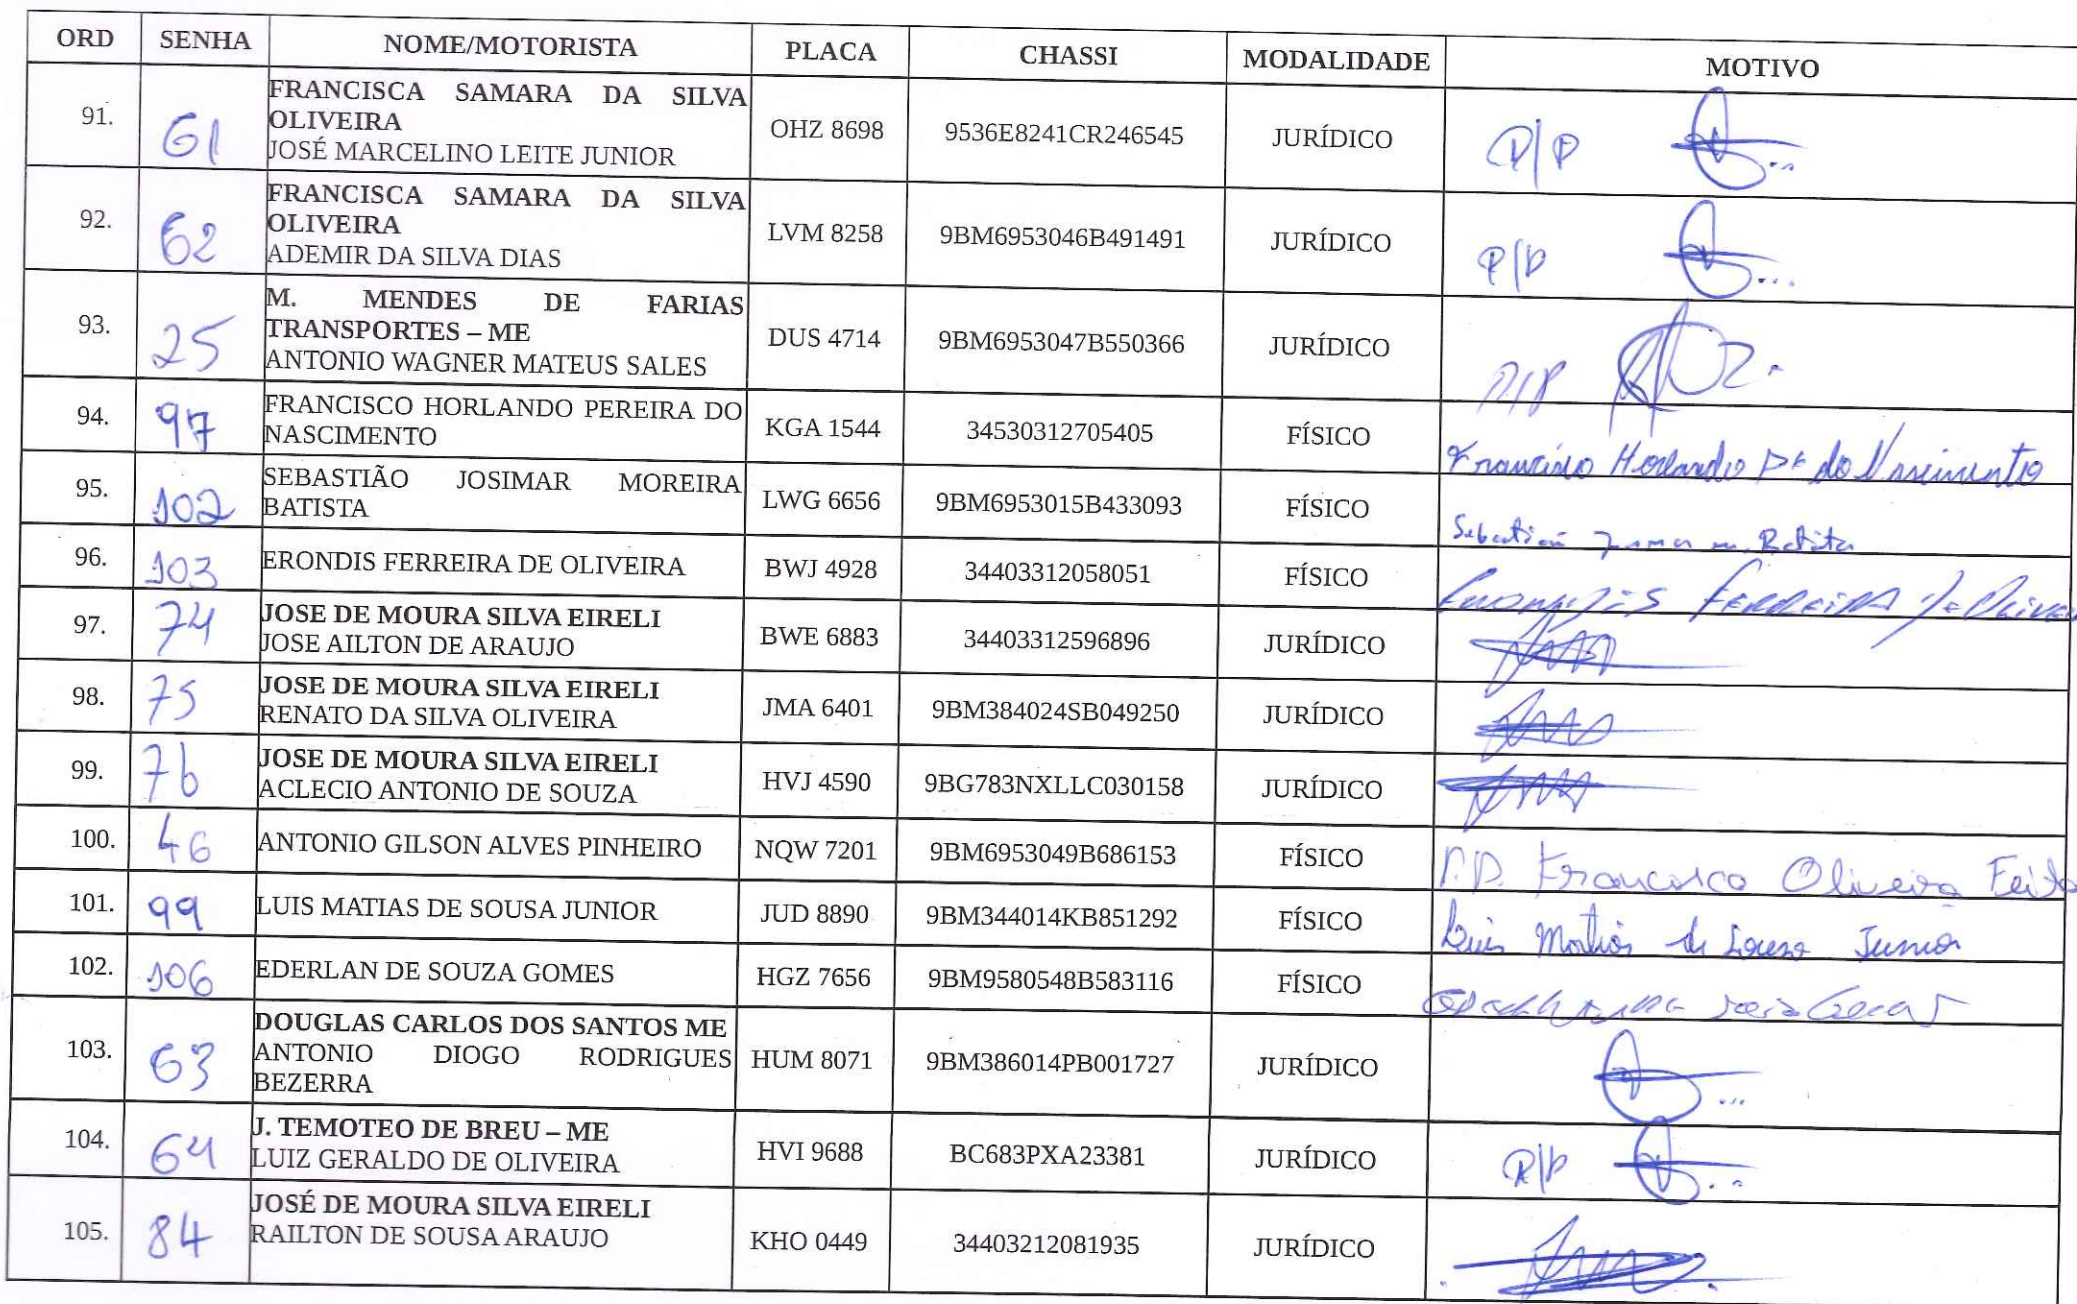 ORD SENHA NOME/MOTORISTA PLACA CHASSI MODALIDADE MOTIVO
91. 61 FRANCISCA SAMARA DA SILVA
OLIVEIRA
JOSÉ MARCELINO LEITE JUNIOR OHZ 8698 9536E8241CR246545 JURÍDICO P/P
92. 62 FRANCISCA SAMARA DA SILVA
OLIVEIRA
ADEMIR DA SILVA DIAS LVM 8258 9BM6953046B491491 JURÍDICO P/P
93. 25 M. MENDES DE FARIAS
TRANSPORTES – ME
ANTONIO WAGNER MATEUS SALES DUS 4714 9BM6953047B550366 JURÍDICO P/P
94. 97 FRANCISCO HORLANDO PEREIRA DO
NASCIMENTO KGA 1544 34530312705405 FÍSICO Francisco Horlando Pª do Nascimento
95. 102 SEBASTIÃO JOSIMAR MOREIRA
BATISTA LWG 6656 9BM6953015B433093 FÍSICO Sebastião Batista
96. 103 ERONDIS FERREIRA DE OLIVEIRA BWJ 4928 34403312058051 FÍSICO Erondis FERREIRA
97. 74 JOSE DE MOURA SILVA EIRELI
JOSE AILTON DE ARAUJO BWE 6883 34403312596896 JURÍDICO
98. 75 JOSE DE MOURA SILVA EIRELI
RENATO DA SILVA OLIVEIRA JMA 6401 9BM384024SB049250 JURÍDICO
99. 76 JOSE DE MOURA SILVA EIRELI
ACLECIO ANTONIO DE SOUZA HVJ 4590 9BG783NXLLC030158 JURÍDICO
100. 46 ANTONIO GILSON ALVES PINHEIRO NQW 7201 9BM6953049B686153 FÍSICO P.P. Francisco Oliveira Feito
101. 99 LUIS MATIAS DE SOUSA JUNIOR JUD 8890 9BM344014KB851292 FÍSICO Luis Matias de Sousa Junior
102. 106 EDERLAN DE SOUZA GOMES HGZ 7656 9BM9580548B583116 FÍSICO
103. 63 DOUGLAS CARLOS DOS SANTOS ME
ANTONIO DIOGO RODRIGUES
BEZERRA HUM 8071 9BM386014PB001727 JURÍDICO
104. 64 J. TEMOTEO DE BREU – ME
LUIZ GERALDO DE OLIVEIRA HVI 9688 BC683PXA23381 JURÍDICO P/P
105. 84 JOSÉ DE MOURA SILVA EIRELI
RAILTON DE SOUSA ARAUJO KHO 0449 34403212081935 JURÍDICO